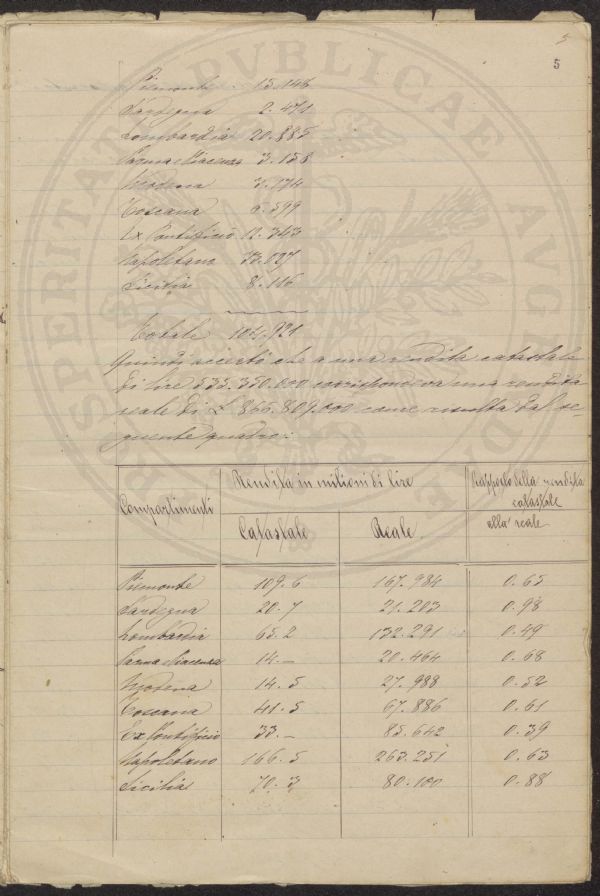 5
5
Piemonte 15.146
Sardegna 2.471
Lombardia 20.885
Parma e Piacenza 3.158
Modena 3.174
Toscana 6.599
Ex Pontificio 12.343
Napoletano 33.027
Sicilia 8.116
Totale 104,921
Quindi accertò che a una rendita catastale
di lire 535.350.000 corrispondeva una rendita
reale di L 866.809.000 come risulta dal se-
guente quadro:
Compartimenti
Rendita in milioni di lire
Rapporto della rendita
catastale
alla reale
Catastale Reale
Piemonte 109.6 167.984 0.65
Sardegna 20.7 21.203 0.98
Lombardia 65.2 132.291 0.49
Parma e Piacenza 14.— 20.464 0.68
Modena 14.5 27.988 0.52
Toscana 41.5 67.886 0.61
Ex Pontificio 33.— 85.642 0.39
Napoletano 166.5 263.251 0.63
Sicilia 70.3 80.100 0.88
PROSPERITATI PVBLICAE AVGENDAE